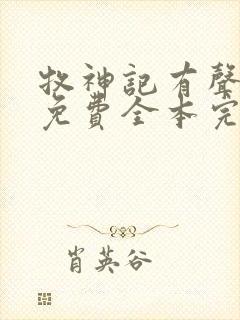 牧神記有聲
免費全本完
肖英谷